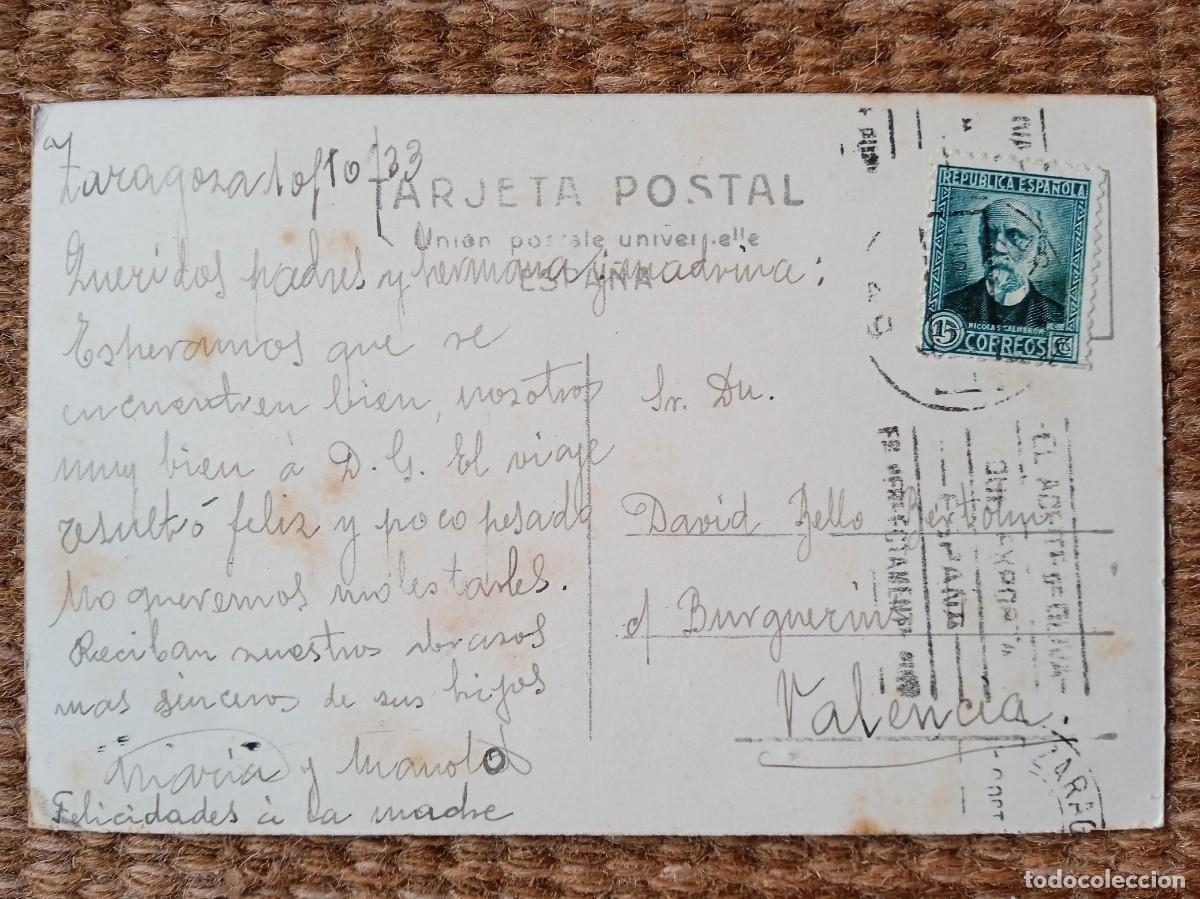 Zaragoza 10/10/33
TARJETA POSTAL
Unión postale universelle
ESPAÑA
Queridos padres y hermana y madrina:
Esperamos que se
encuentren bien, nosotros
muy bien à D. G. El viaje
resultó feliz y poco pesado
No queremos molestarles.
Reciban nuestros abrazos
mas sinceros de sus hijos
Maria y Manolo
Felicidades à la madre
REPUBLICA ESPAÑOLA
NICOLAS SALMERON
15 CORREOS CTS
Sr. Dn.
David Bello Bertolin
c/ Burguerins
Valencia.
EL ACEITE DE OLIVA
QUE EXPORTA
ESPAÑA
ES PERFECTAMENTE PURO
ZARAG
todocoleccion